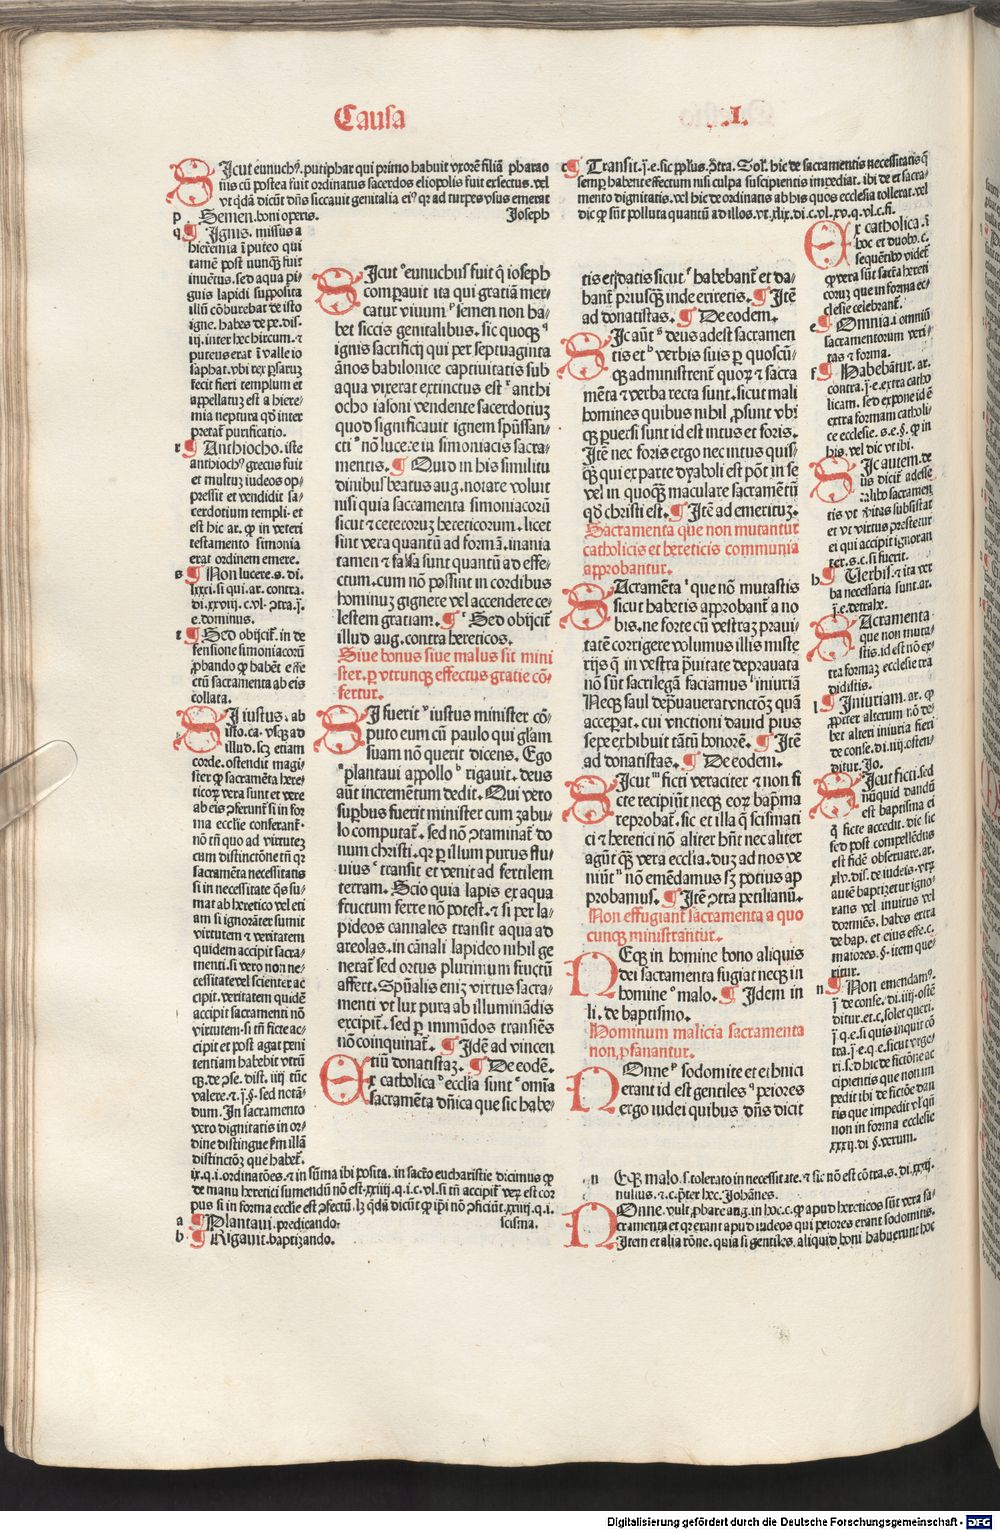 Causa
.I.
SIcut eunuchꝰ. putiphar qui primo habuit vxorē filiā pharao
nis cū postea fuit ordinatus sacerdos eliopolis fuit exsectus. vel
vt qdā dicūt dn̄s siccauit genitalia eiꝰ qꝛ ad turpes vsus emerat
p Semen. boni operis. Joseph
q ¶ Ignis. missus a
hieremia ī puteo qui
tamē post nunq̄ fuit
inuētus. sed aqua pi-
guis lapidi supposita
illū cōburebat de isto
igne. habes de pe. dis.
ij. inter hec hircum. ⁊
puteus erat ī valle io
saphat. vbi rex ꝑsaruꝫ
fecit fieri templum et
appellatuꝫ est a hiere-
mia neptura qd̓ inter
pretat̄ purificatio.
r ¶ Anthiocho. iste
anthiochꝰ grecus fuit
et multuꝫ iudeos op-
pressit et vendidit sa-
cerdotium templi. et
est hic ar. ꝙ in veteri
testamento simonia
erat ordinem emere.
s ¶ Non lucere. s. di.
lxxxi. si qui. ar. contra.
di. xxviij. c. vl. ꝯtra. j.
e. dominus.
t ¶ Sed obijcit̄. in de
fensione simoniacorū
ꝓbando ꝙ habēt effe
ctū sacramenta ab eis
collata.
SI iustus. ab
isto. ca. vsqꝫ ad
illud. scꝫ etiam
corde. ostendit magi-
ster ꝙ sacramēta here-
ticoꝝ vera sunt et vere
ab eis ꝯferunt̄ si in for
ma ecclie conferant̄.
nō tn̄ quo ad virtuteꝫ
cum distinctōne tn̄ qꝛ
sacramēta necessitatis
si in necessitate qs su-
mat ab heretico vel eti
am si ignorāter sumit
virtutem ⁊ veritatem
quidem accipit sacra-
menti. si vero non ne-
cessitate vel scienter ac
cipit. veritatem quidē
accipit sacramenti nō
virtutem. si tn̄ ficte ac-
cipit et post agat peni
tentiam habebit vtrū
qꝫ. de ꝯse. dist. iiij tūc
valere. ⁊. j. §. sed notā-
dum. In sacramento
vero dignitatis in or-
dine distingue fm illā
distinctōꝫ que habet̄.
ix. q. i. ordinatōes. ⁊ in sūma ibi posita. in sacto eucharistie dicimus ꝙ
de manu heretici sumendū nō est. xxiiij. q. i. c. vl. si tn̄ accipit̄ veꝝ est cor
pus si in forma ecclie est ꝯfectū. lꝫ qdā dicūt ꝙ ipi nō ꝯficiūt. xxiiij. q. i.
a ¶ Plantaui. predicando. scisma.
b ¶ Rigauit. baptiꝫando.
SIcut eunuchus fuit q̄ ioseph
comparauit ita qui gratiā mer-
catur viuum semen non ha-
bet siccis genitalibus. sic quoqꝫ
ignis sacrificij qui per septuaginta
ānos babilonice captiuitatis sub
aqua vixerat extinctus est anthi
ocho iasoni vendente sacerdotiuꝫ
quod significauit ignem spūssan-
cti nō lucere in simoniacis sacra-
mentis. ¶ Quid in his similitu
dinibus beatus aug. notare voluit
nisi quia sacramenta simoniacorū
sicut ⁊ ceterorum hereticorum. licet
sint vera quantū ad formā. inania
tamen ⁊ falsa sunt quantū ad effe-
ctum. cum nō possint in cordibus
hominuꝫ gignere vel accendere ce-
lestem gratiam. ¶ Sed obijcit̄
illud aug. contra hereticos.
Siue bonus siue malus sit mini
ster. ꝑ vtrunqꝫ effectus gratie cō-
fertur.
SI fuerit iustus minister cō-
puto eum cū paulo qui gloriam
suam nō querit dicens. Ego
plantaui appollo rigauit. deus
aūt incremētum dedit. Qui vero
supbus fuerit minister cum zabu-
lo computat̄. sed nō ꝯtaminat̄ do
num christi. qꝛ ꝑ illum purus flu-
uius transit et venit ad fertilem
terram. Scio quia lapis ex aqua
fructum ferre nō potest. ⁊ si per la-
pideos cannales transit aqua ad
areolas. in cānali lapideo nihil ge
nerat̄ sed ortus plurimum fructū
affert. Spūalis enī virtus sacra-
menti vt lux pura ab illuminādis
excipit̄. sed ꝑ immūdos transiēs
nō coinquinat̄. ¶ Idē ad vincen
tiū donatistaꝫ. ¶ De eodē.
EX catholica ecclia sunt omīa
sacramēta dn̄ica que sic habe-
c ¶ Transit. j. e. sic ppl̓us. ꝯtra. Sol. hic de sacramentis necessitatis q̄
semp habent effectum nisi culpa suscipientis impediat. ibi de et sacra-
mento dignitatis. vel hic de ordinatis ab his quos ecclesia tollerat. vel
dic ꝙ sūt polluta quantū ad illos. vt. xlix. di. c. vl. xv. q. vl. c. fi.
tis et datis sicut habebant̄ et da-
bant̄ priusqꝫ inde exiretis. ¶ Itē
ad donatistas. ¶ De eodem.
SIc aūt deus adest sacramen
tis et verbis suis ꝑ quoscū-
qꝫ administrent̄ quoꝝ ⁊ sacra
mēta ⁊ verba recta sunt. sicut mali
homines quibus nihil ꝓsunt vbi
qꝫ ꝑuersi sunt id est intus et foris.
Itē nec foris ergo nec intus quis-
qꝫ qui ex parte dyaboli est pōt in se
vel in quoqꝫ maculare sacramētū
qd̓ christi est. ¶ Itē ad emerituꝫ.
Sacramenta que non mutantur
catholicis et hereticis communia
approbantur.
SAcramēta que nō mutastis
sicut habetis approbant̄ a no
bis. ne forte cū vestraꝫ praui-
tatē corrigere volumus illis miste
rijs q̄ in vestra pravitate deprauata
nō sūt sacrilegā faciamus iniuriā
Necꝫ saul depravauerat vnctōꝫ quā
acceperat. cui vnctioni dauid pius
sepe exhibuit tātū honorē. ¶ Itē
ad donatistas. ¶ De eodem.
SIcut ficti veraciter ⁊ non fi
cte recipiūt necqꝫ eoꝝ bap̄ma
reprobat̄. sic et illa q̄ scismati
ci ⁊ heretici nō aliter hn̄t nec aliter
agūt qꝫ vera ecclia. duꝫ ad nos ve
niūt nō emēdamus sꝫ potius ap
probamus. ¶ Itē ꝯtra petilianū.
Non effugiant sacramenta a quo
cunqꝫ ministrantur.
NEqꝫ in homine bono aliquis
dei sacramenta fugiat necqꝫ in
homine malo. ¶ Idem in
li. de baptismo.
Hominum malicia sacramenta
non ꝓfanantur.
NOnne sodomite et ethnici
erant id est gentiles peiores
ergo iudei quibus dn̄s dicit
EX catholica. ī
hoc et duobꝰ. c.
sequētibꝰ videt̄
ꝙ vera sūt sacta hereti
coruꝫ que in forma ec-
clesie celebrant̄.
e ¶ Omnia. i. omniū
sacramentorum veri-
tas ⁊ forma.
f ¶ Habebātur. ar.
contra. j. e. extra catho
licam. sed expone id ē
extra formam catholi-
ce ecclesie. s. e. §. ꝙ in
his. vel dic vt ibi.
SIc autem. de
us dicit̄ adesse
malis sacramen
tis vt v̓itas subsistat
et vt virtus prestetur
ei qui accipit ignoran
ter. s. c. si fuerit.
h ¶ Uerbis. ⁊ ita ver
ba necessaria sunt. ar.
j. e. detrahe.
SAcramenta
que non muta-
stis. id est nō ex-
tra formaꝫ ecclesie tra
didistis.
l ¶ Iniuriam. ar. ꝙ
ꝓpter alterum nō de-
bet alteri iniuria fieri
de conse. di. iiij. osten-
ditur. Jo.
SIcut ficti. sed
nūquid dandū
est baptisma ei
q̄ ficte accedit. dic sic
sed post compellēdus
est fidē obseruare. ar.
xlv. dis. de iudeis. vtꝝ
autē baptizetur igno-
rans vel inuitus vel
dormiēs. habes extra
de bap. et eius effe. c.
maiores. §. item que-
ritur.
n ¶ Non emendamꝰ.
j. de conse. di. iiij. ostē
ditur. et. c. solet queri.
j. q. e. si quis inquit cō
tra. j. e. q. e. sicut vrge-
ri. s. d̓ hic de fictiōe ac
cipientis que non im
pedit ibi de fictiōe dan
tis que impedit vl̓ qn̄
non in forma ecclesie
xxxij. di §. verum.
n EQꝫ malo. s. tolerato in necessitate. ⁊ sic nō est cōtra. s. di. xxxij.
nullus. ⁊. c. pter hec. Johānes.
NOnne. vult ꝓbare aug. in hoc. c. ꝙ apud hereticos sūt vera sa-
cramenta et qꝛ erant apud iudeos qui peiores erant sodomitis.
Item et alia rōne. quia si gentiles. aliquid boni habuerunt hoc
Digitalisierung gefördert durch die Deutsche Forschungsgemeinschaft - DFG